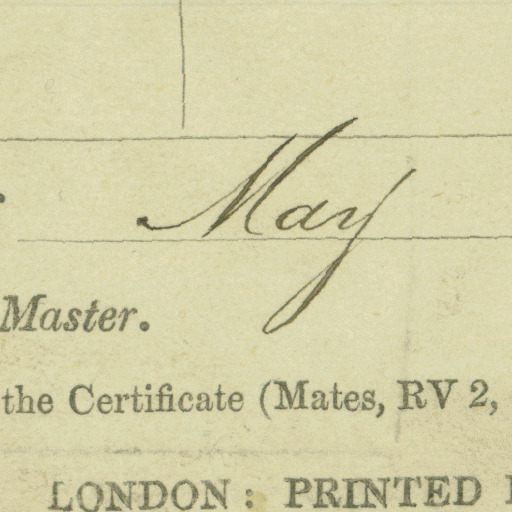 May
Master.
the Certificate (Mates, RV 2,
LONDON: PRINTED